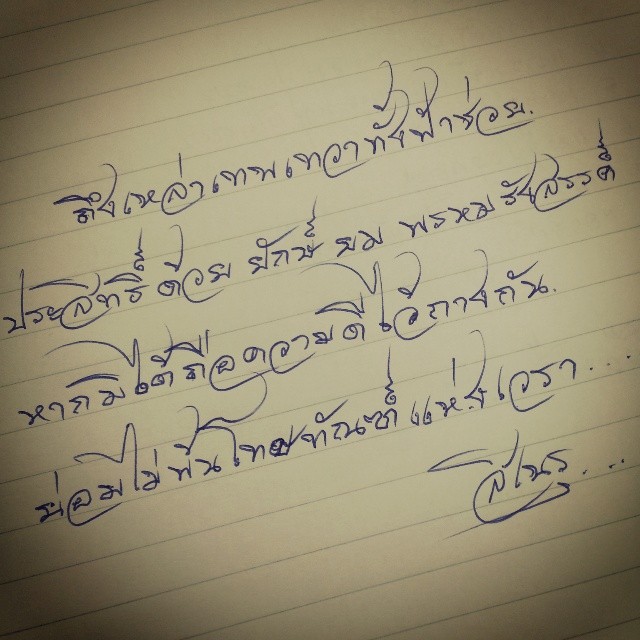 ถึงเหล่าเทพเทวาทั้งฟ้าช่วย.
ประสิทธิ์ด้วย ยักษ์ ยม พรหมรังสรรค์
หากมิได้ถือความดีไว้กางกัน.
ย่อมมิไม่พ้นโทษทัณฑ์แห่งเวรา...
สิเนรุ...